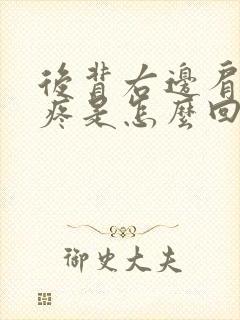 後背右邊肩
疼是怎麼回
御史大夫